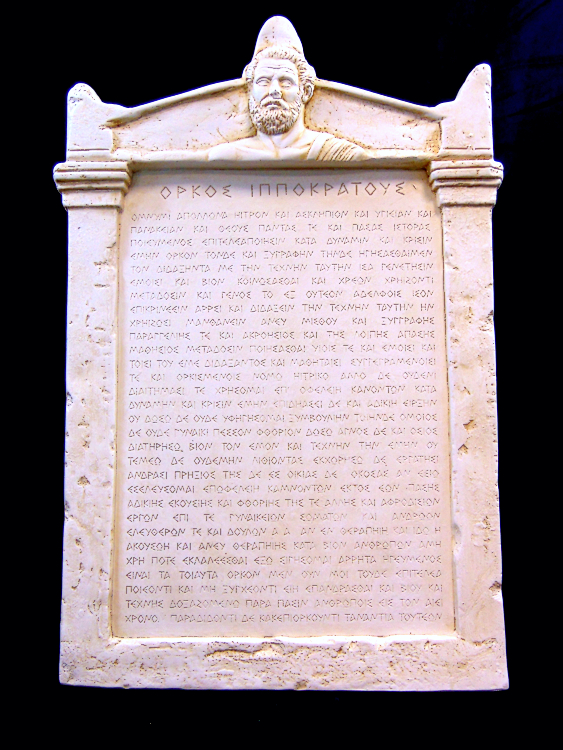 ΟΡΚΟΣ ΙΠΠΟΚΡΑΤΟΥΣ
ΟΜΝΥΜΙ ΑΠΟΛΛΩΝΑ ΙΗΤΡΟΝ ΚΑΙ ΑΣΚΛΗΠΙΟΝ ΚΑΙ ΥΓΙΕΙΑΝ ΚΑΙ
ΠΑΝΑΚΕΙΑΝ ΚΑΙ ΘΕΟΥΣ ΠΑΝΤΑΣ ΤΕ ΚΑΙ ΠΑΣΑΣ ΙΣΤΟΡΑΣ
ΠΟΙΕΥΜΕΝΟΣ ΕΠΙΤΕΛΕΑ ΠΟΙΗΣΕΙΝ ΚΑΤΑ ΔΥΝΑΜΙΝ ΚΑΙ ΚΡΙΣΙΝ
ΕΜΗΝ ΟΡΚΟΝ ΤΟΝΔΕ ΚΑΙ ΞΥΓΓΡΑΦΗΝ ΤΗΝΔΕ ΗΓΗΣΑΣΘΑΙ ΜΕΝ
ΤΟΝ ΔΙΔΑΞΑΝΤΑ ΜΕ ΤΗΝ ΤΕΧΝΗΝ ΤΑΥΤΗΝ ΙΣΑ ΓΕΝΕΤΗΣΙΝ
ΕΜΟΙΣΙ ΚΑΙ ΒΙΟΝ ΚΟΙΝΩΣΑΣΘΑΙ ΚΑΙ ΧΡΕΩΝ ΧΡΗΙΖΟΝΤΙ
ΜΕΤΑΔΟΣΙΝ ΚΑΙ ΓΕΝΟΣ ΤΟ ΕΞ ΟΥΤΕΟΝ ΑΔΕΛΦΟΙΣ ΙΣΟΝ
ΕΠΙΚΡΙΝΕΕΙΝ ΑΡΡΕΣΙ ΚΑΙ ΔΙΔΑΞΕΙΝ ΤΗΝ ΤΕΧΝΗΝ ΤΑΥΤΗΝ ΗΝ
ΧΡΗΙΖΩΣΙ ΜΑΝΘΑΝΕΙΝ ΑΝΕΥ ΜΙΣΘΟΥ ΚΑΙ ΞΥΓΓΡΑΦΗΣ
ΠΑΡΑΓΓΕΛΙΗΣ ΤΕ ΚΑΙ ΑΚΡΟΗΣΙΟΣ ΚΑΙ ΤΗΣ ΛΟΙΠΗΣ ΑΠΑΣΗΣ
ΜΑΘΗΣΙΟΣ ΜΕΤΑΔΟΣΙΝ ΠΟΙΗΣΑΣΘΑΙ ΥΙΟΙΣΙ ΤΕ ΚΑΙ ΕΜΟΙΣΙ ΚΑΙ
ΤΟΙΣΙ ΤΟΥ ΕΜΕ ΔΙΔΑΞΑΝΤΟΣ ΚΑΙ ΜΑΘΗΤΑΙΣΙ ΣΥΓΓΕΓΡΑΜΜΕΝΟΙΣΙ
ΤΕ ΚΑΙ ΟΡΚΙΣΜΕΝΟΙΣ ΝΟΜΩ ΙΗΤΡΙΚΩ ΑΛΛΩ ΔΕ ΟΥΔΕΝΙ
ΔΙΑΙΤΗΜΑΣΙ ΤΕ ΧΡΗΣΟΜΑΙ ΕΠ ΩΦΕΛΕΙΗ ΚΑΜΝΟΝΤΩΝ ΚΑΤΑ
ΔΥΝΑΜΗΝ ΚΑΙ ΚΡΙΣΙΝ ΕΜΗΝ ΕΠΙ ΔΗΛΗΣΕΙ ΔΕ ΚΑΙ ΑΔΙΚΙΗ ΕΙΡΞΕΙΝ
ΟΥ ΔΩΣΩ ΔΕ ΟΥΔΕ ΥΦΗΓΗΣΟΜΑΙ ΞΥΜΒΟΥΛΙΗΝ ΤΟΙΗΝΔΕ ΟΜΟΙΩΣ
ΔΕ ΟΥΔΕ ΓΥΝΑΙΚΙ ΠΕΣΣΟΝ ΦΘΟΡΙΟΝ ΔΩΣΩ ΑΓΝΩΣ ΔΕ ΚΑΙ ΟΣΙΩΣ
ΔΙΑΤΗΡΗΣΩ ΒΙΟΝ ΤΟΝ ΕΜΟΝ ΚΑΙ ΤΕΧΝΗΝ ΤΗΝ ΕΜΗΝ ΟΥ
ΤΕΜΕΩ ΔΕ ΟΥΔΕ ΜΗΝ ΛΙΘΙΩΝΤΑΣ ΕΚΧΩΡΗΣΩ ΔΕ ΕΡΓΑΤΗΣΙ
ΑΝΔΡΑΣΙ ΠΡΗΞΙΟΣ ΤΗΣ ΔΕ ΕΣ ΟΙΚΙΑΣ ΔΕ ΟΚΟΣΑΣ ΑΝ ΕΣΙΩ
ΕΣΕΛΕΥΣΟΜΑΙ ΕΠ ΩΦΕΛΕΙΗ ΚΑΜΝΟΝΤΩΝ ΕΚΤΟΣ ΕΩΝ ΠΑΣΗΣ
ΑΔΙΚΙΗΣ ΕΚΟΥΣΙΗΣ ΚΑΙ ΦΘΟΡΙΗΣ ΤΗΣ ΤΕ ΑΛΛΗΣ ΚΑΙ ΑΦΡΟΔΙΣΙΩΝ
ΕΡΓΩΝ ΕΠΙ ΤΕ ΓΥΝΑΙΚΕΙΩΝ ΣΩΜΑΤΩΝ ΚΑΙ ΑΝΔΡΩΩΝ
ΕΛΕΥΘΕΡΩΝ ΤΕ ΚΑΙ ΔΟΥΛΩΝ Α Δ ΑΝ ΕΝ ΘΕΡΑΠΗΙΗ ΚΑΙ ΙΔΩ Η
ΑΚΟΥΣΩ Η ΚΑΙ ΑΝΕΥ ΘΕΡΑΠΗΙΗΣ ΚΑΤΑ ΒΙΟΝ ΑΝΘΡΩΠΩΝ Α ΜΗ
ΧΡΗ ΠΟΤΕ ΕΚΛΑΛΕΕΣΘΑΙ ΕΞΩ ΣΙΓΗΣΟΜΑΙ ΑΡΡΗΤΑ ΗΓΕΥΜΕΝΟΣ
ΕΙΝΑΙ ΤΑ ΤΟΙΑΥΤΑ ΟΡΚΟΝ ΜΕΝ ΟΥΝ ΜΟΙ ΤΟΝΔΕ ΕΠΙΤΕΛΕΑ
ΠΟΙΕΟΝΤΙ ΚΑΙ ΜΗ ΞΥΓΧΕΟΝΤΙ ΕΙΗ ΕΠΑΥΡΑΣΘΑΙ ΚΑΙ ΒΙΟΥ ΚΑΙ
ΤΕΧΝΗΣ ΔΟΞΑΖΟΜΕΝΩ ΠΑΡΑ ΠΑΣΙΝ ΑΝΘΡΩΠΟΙΣ ΕΙΣ ΤΟΝ ΑΙΕΙ
ΧΡΟΝΟΝ ΠΑΡΑΒΑΙΝΟΝΤΙ ΔΕ ΚΑΙ ΕΠΙΟΡΚΟΥΝΤΙ ΤΑΝΑΝΤΙΑ ΤΟΥΤΕΩΝ